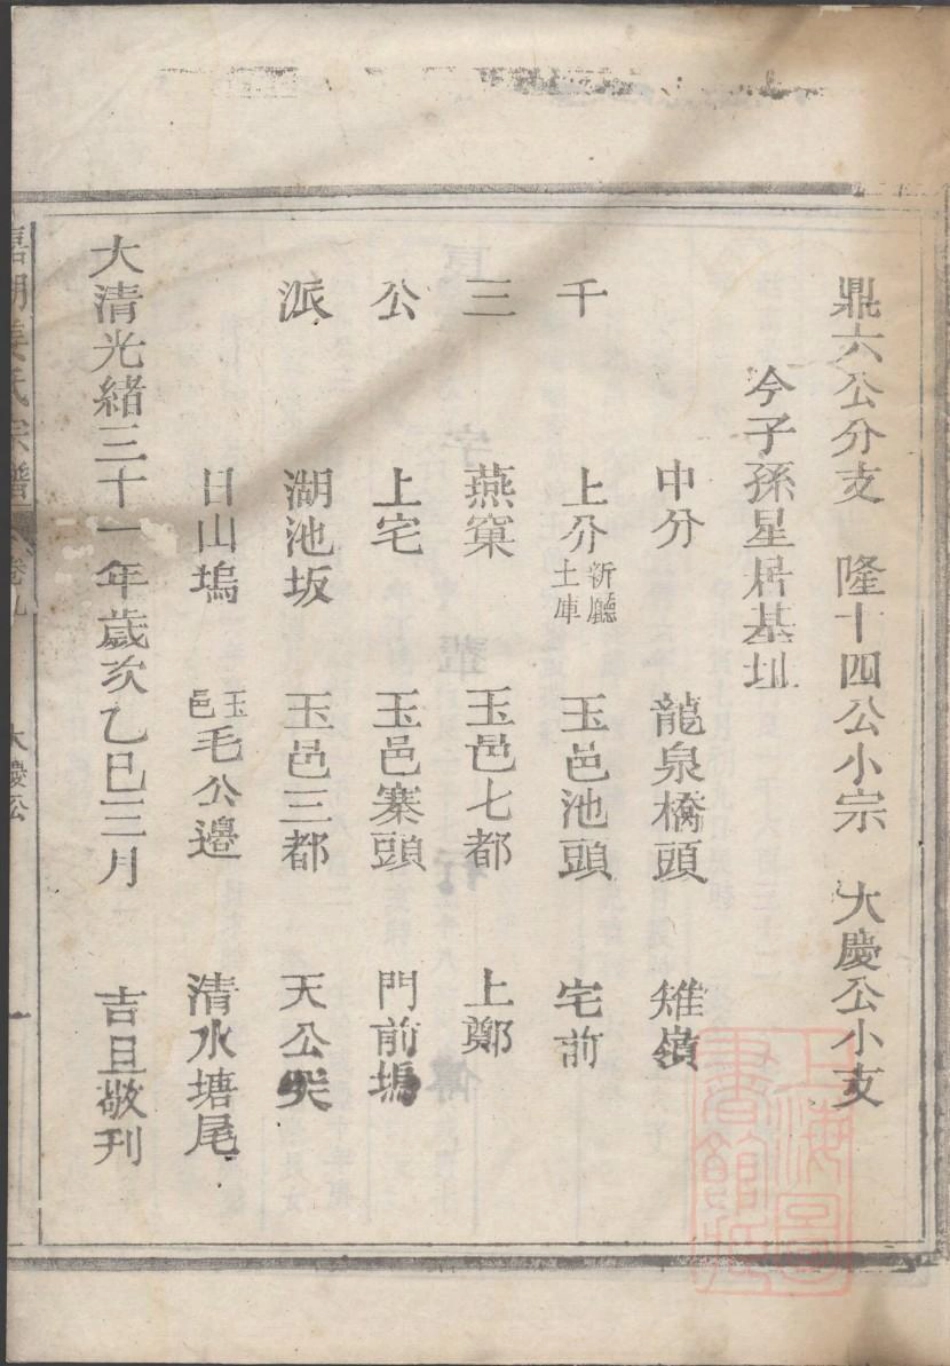 鼎六公分支　隆十四公小宗　大慶公小支
今子孫星居基址
中分　龍泉橋頭　雉嶺
千　上分新廳土庫　玉邑池頭　宅前
三　燕窠　玉邑七都　上鄭
公　上宅　玉邑寨頭　門前塢
派　湖池坂　玉邑三都　天公
日山塢　玉邑毛公邊　清水塘尾
大清光緒三十一年歲次乙巳三月　吉旦敬刊
氏宗譜　卷九　大慶公　一
上海圖書館藏